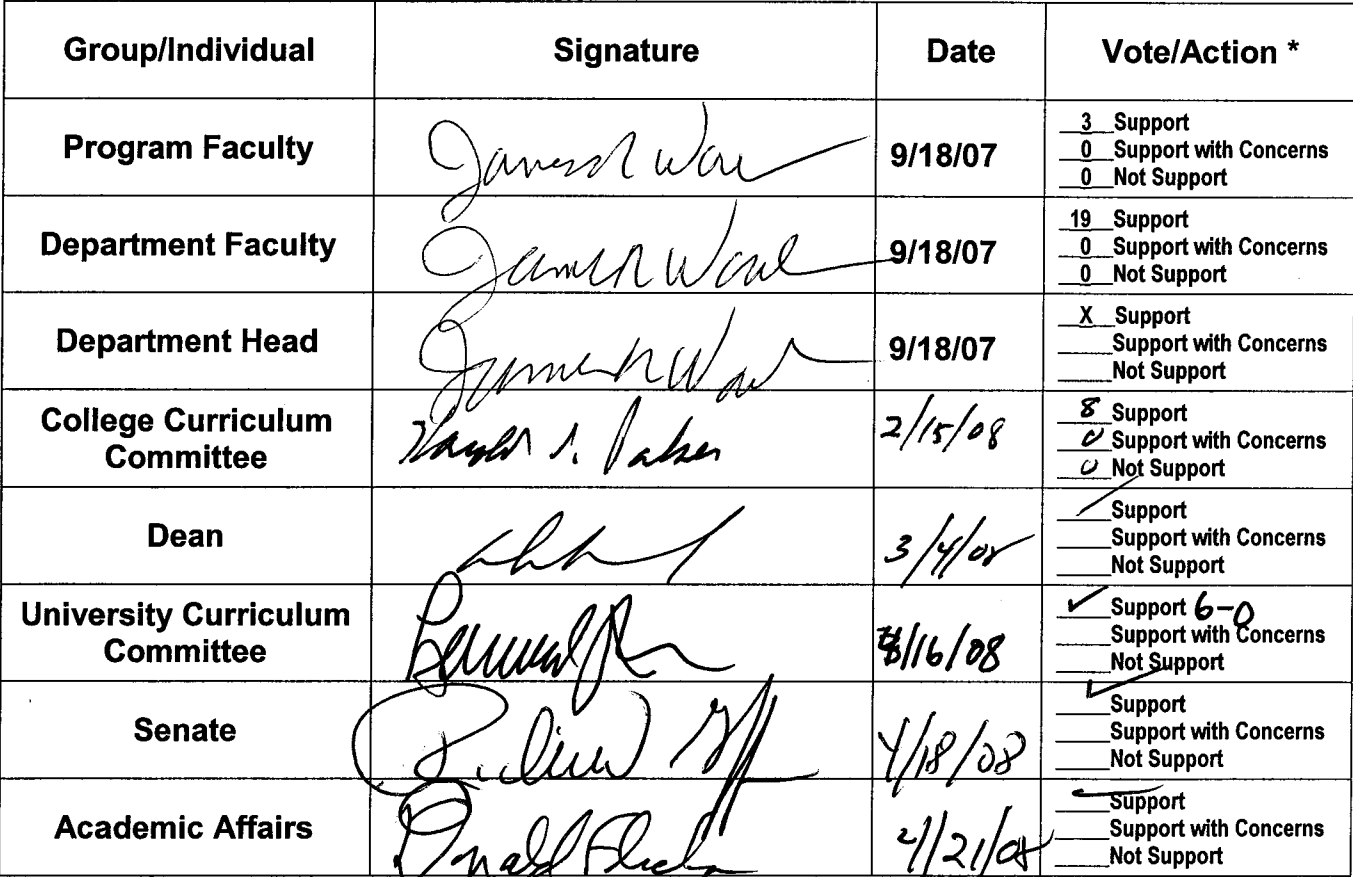 Group/Individual Signature Date Vote/Action *
Program Faculty 9/18/07
3 Support
0 Support with Concerns
0 Not Support
Department Faculty 9/18/07
19 Support
0 Support with Concerns
0 Not Support
Department Head 9/18/07
X Support
Support with Concerns
Not Support
College Curriculum
Committee
2/15/08
8 Support
0 Support with Concerns
0 Not Support
Dean 3/4/08
Support
Support with Concerns
Not Support
University Curriculum
Committee
/16/08
✓ Support 6-0
Support with Concerns
Not Support
Senate 4/18/08
✓ Support
Support with Concerns
Not Support
Academic Affairs 4/21/08
Support
Support with Concerns
Not Support